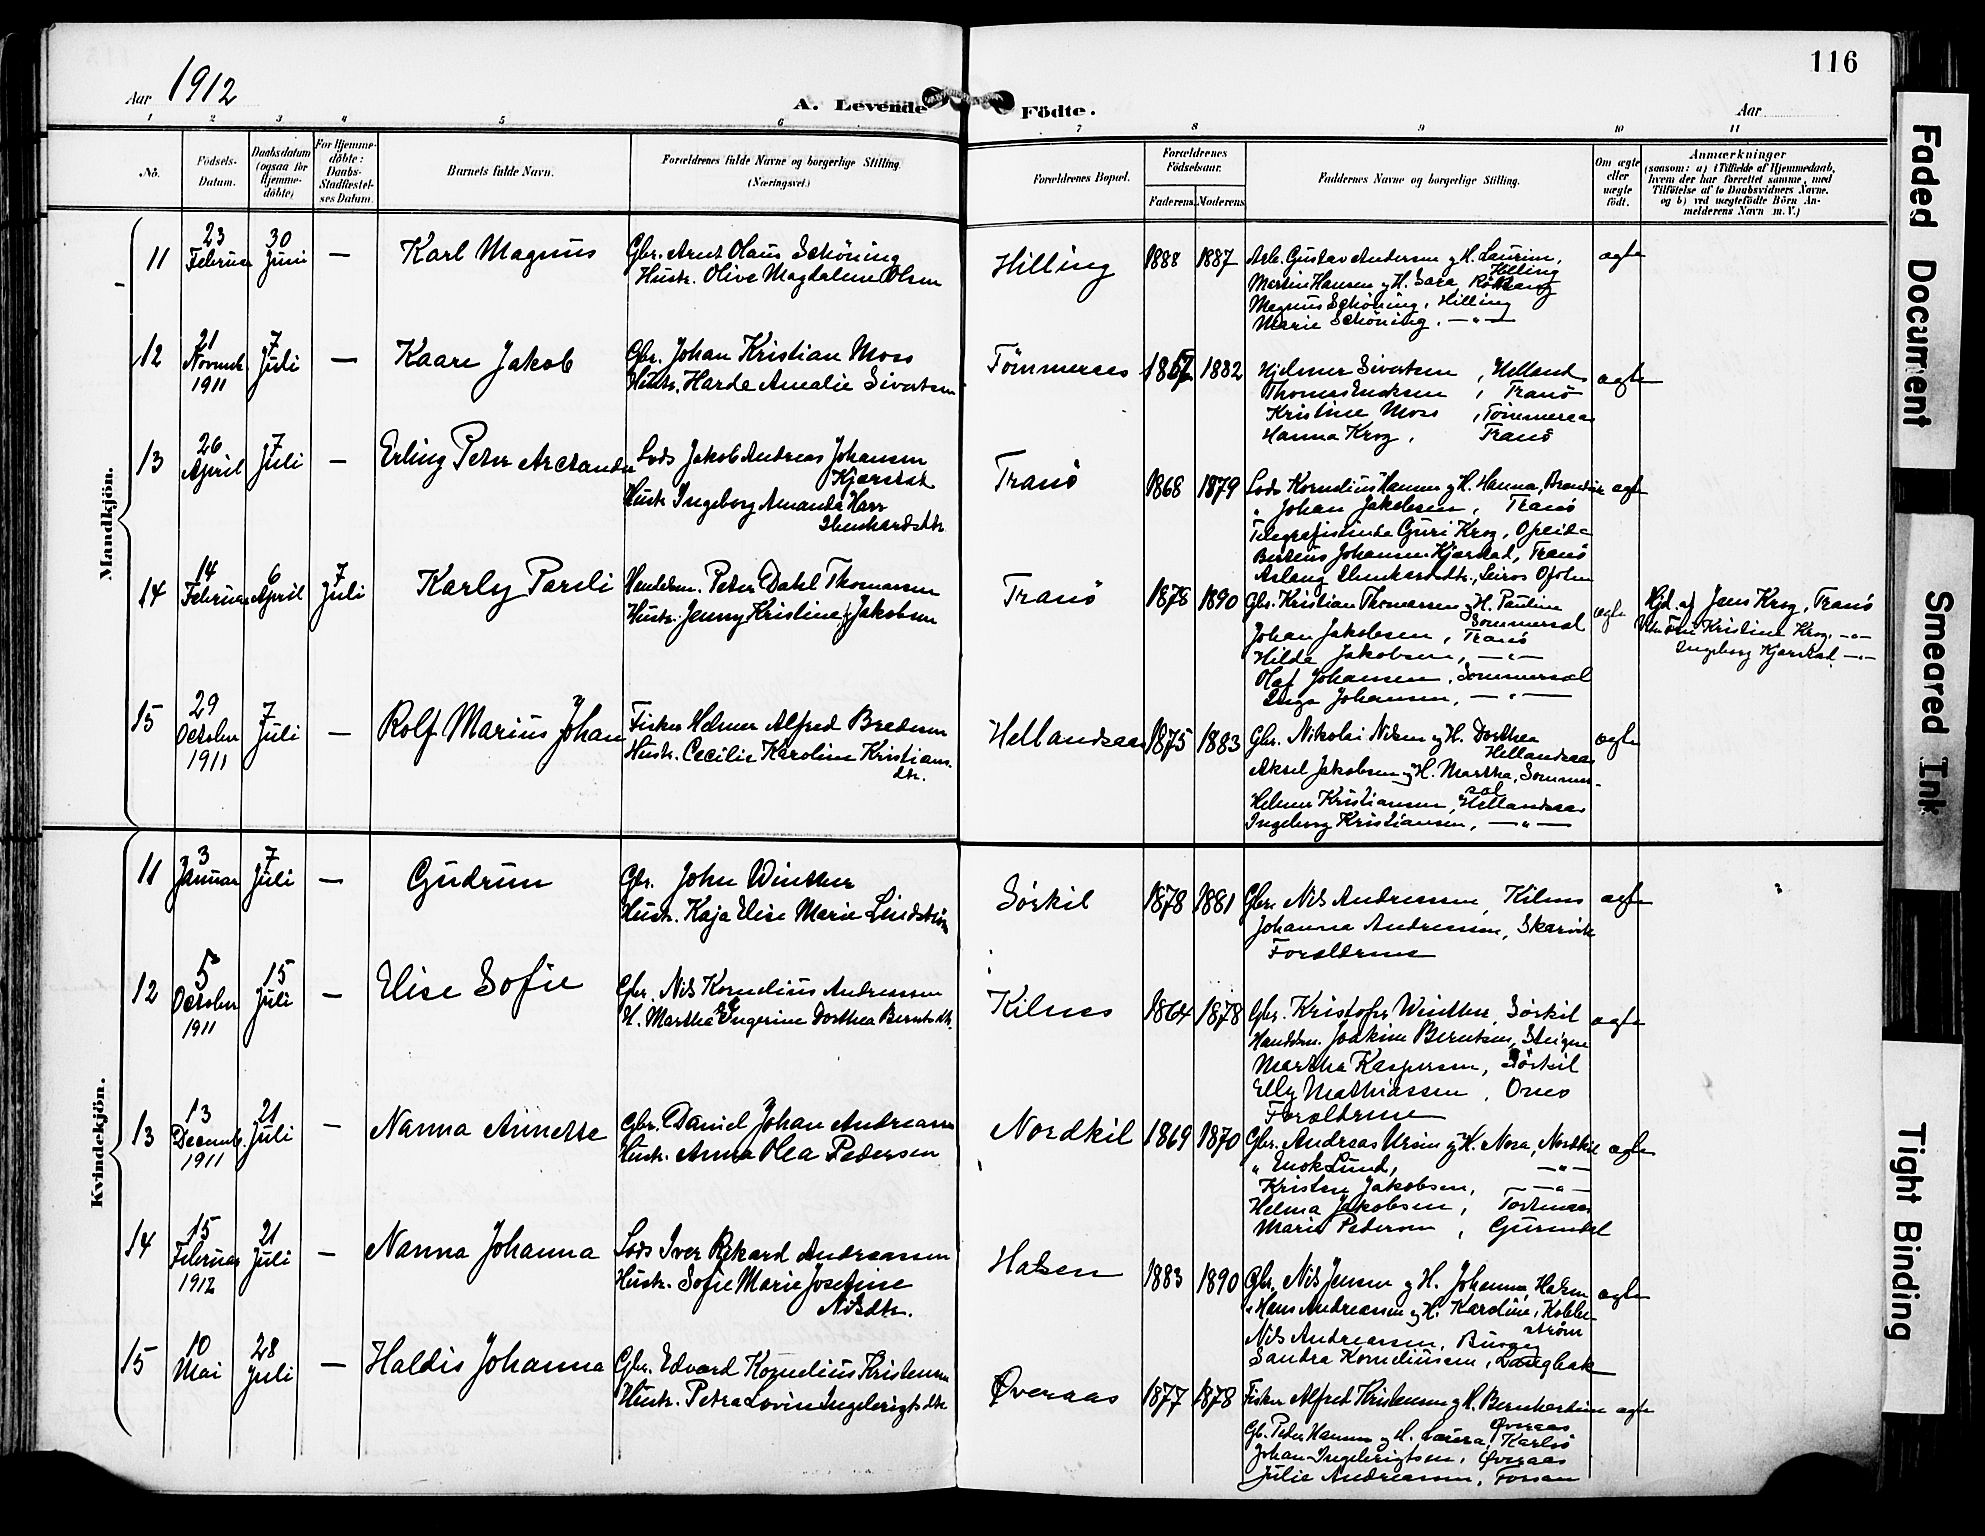 116
Aar 1912
A. Levende Födte.
Aar
1 2 3 4 5 6 7 8 9 10 11
No.
Födsels-
Datum.
Daabsdatum
(ogsaa for
Hjemme-
döbte)
For Hjemme-
döbte:
Daabs-
Stadfæstel-
ses Datum.
Barnets fulde Navn.
Forældrenes fulde Navne og borgerlige Stilling.
(Næringsvei.)
Forældrenes Bopæl.
Forældrenes
Födselsaar.
Faderens. Moderens.
Faddernes Navne og borgerlige Stilling.
Om ægte
eller
uægte
födt.
Anmærkninger
(saasom: a) i Tilfælde af Hjemmedaab,
hvem der har forrettet samme, med
Tilföielse af to Daabsvidners Navne.
og b) ved uægtefödte Börn An-
melderens Navn m. V.)
Mandkjön.
11
23
Februar
30
Juni
—
Karl Magnus
Gbr. Arnt Olaus Schöning
Hustr. Olive Magdalene Olsen
Hilling
1888
1887
Arb. Gustav Andersen og H. Laurine,
Hilling
Martin Hansen og H. Sara,
Magnus Schöning, Hilling
Marie Schöning, —"—
ægte
12
21
Novemb.
1911
7
Juli
—
Kaare Jakob
Gbr. Johan Kristian Moss
Hustr. Harda Amalie Sivertsen
Tömmeraas
1882
Hjelmer Sivertsen, Helland
Thomas, Tranö
Kristine Moss, Tömmeraas
Hanna Krog, Tranö
ægte
13
26
April
7
Juli
—
Erling Peter
Lods Jakob Andreas Johansen
Kjærstad
Hustr. Ingeborg Amanda
Tranö
1868
1879
Lods Kornelius Hansen og H. Hanna,
" Johan Jakobsen, Tranö
Telegrafistinde Guri Krog, Opeide
Johansen Kjærstad, Tranö
ægte
14
14
Februar
6
April
7
Juli
Karly
Handelsm. Peter Dahl Thomassen
Hustr. Jenny Kristine f. Jakobsen
Tranö
1878
1890
Gbr. Kristian Thomassen og H. Pauline
Sommersel
Johan Jakobsen, Tranö
Hilda Jakobsen, —"—
Olaf Johansen, Sommersel
Inga Johansen, —"—
ægte
Hjd. af Jens Krog, Tranö
Kristine Krog, —"—
Ingeborg Kjærstad —"—
15
29
October
1911
7
Juli
—
Rolf Marius Johan
Fisker Helmer Alfred Bredesen
Hustr. Cecilie Karoline Kristians-
dtr.
Hellandsaas
1875
1883
Gbr. Nikolai Nilsen og H. Dorthea
Hellandsaas
Aksel Jakobsen og H. Martha, Sommer-
sel
Helmer Kristiansen, Hellandsaas
Ingeborg Kristiansen, —"—
ægte
Kvindekjön.
11
3
Januar
7
Juli
—
Gudrun
Gbr. John Winther
Hustr. Kaja Elise Marie Lindström
Sörkil
1878
1881
Gbr. Nils Andreassen, Kilnes
Johanna Andreassen, Skarvik
Forældrene
ægte
12
5
October
1911
15
Juli
—
Elise Sofie
Gbr. Nils Kornelius Andreassen
H. Martha Ingerine Dorthea Berntsdtr.
Kilnes
1864
1878
Gbr. Kristofer Winther, Sörkil
Handelsm. Joakim Berntsen, Steigen
Martha Kaspersen, Sörkil
Elly Mathiassen, Ornes
Forældrene
ægte
13
13
Decemb.
1911
21
Juli
—
Nanna Annette
Gbr. Daniel Johan Andreassen
Hustr. Anna Olea Pedersen
Nordkil
1869
1870
Gbr. Andreas Ursin og H. Nora, Nordkil
" Enok Lund, —"—
Kristen Jakobsen, —"—
Helma Jakobsen,
Marie Pedersen,
ægte
14
15
Februar
1912
21
Juli
—
Nanna Johanna
Lods Iver Rikard Andreassen
Hustr. Sofie Marie Josefine
Nilsdtr.
Halsen
1883
1890
Gbr. Nils Jensen og H. Johanna, Halsen
" Hans Andreassen og H. Karoline, Kobbe-
ström
Nils Andreassen,
Sandra Korneliussen,
ægte
15
10
Mai
28
Juli
—
Haldis Johanna
Gbr. Edvard Kornelius Kristensen
Hustr. Petra Lovise Ingebrigtsdtr.
Överaas
1877
1878
Fisker Alfred Kristensen og H. Bernhardine
Överaas
Gb. Peder Hansen og H. Laura, Karlsö
Johan Ingebrigtsen, Överaas
Julie Andreassen, Forsan
ægte
Faded Document
Smeared Ink
Tight Binding